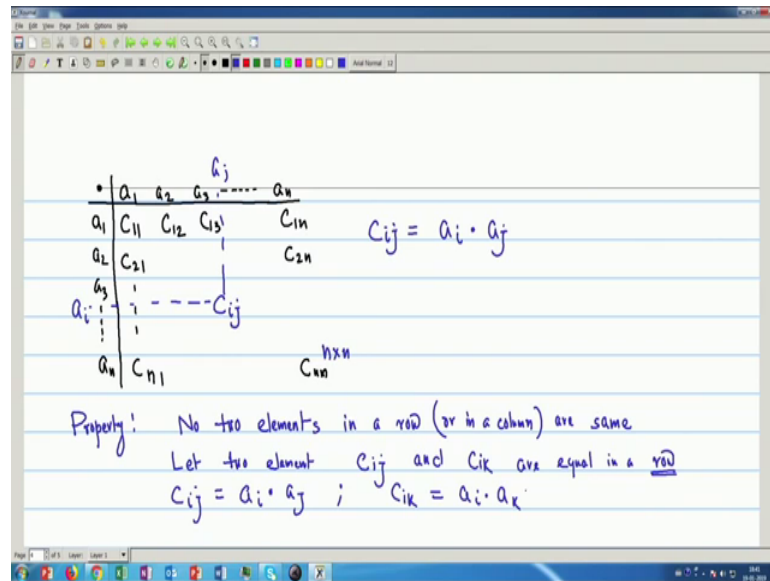 Journal
File Edit View Page Tools Options Help
Arial Normal 12
aj
• a1 a2 a3 ----- an
a1 C11 C12 C13 C1n
a2 C21 C2n
a3
ai - - - - - - Cij
an Cn1 Cnn n×n
Cij = ai • aj
Property! No two elements in a row (or in a column) are same
Let two element Cij and Cik are equal in a row
Cij = ai • aj ; Cik = ai • ak
Page of 5 Layer: Layer 1